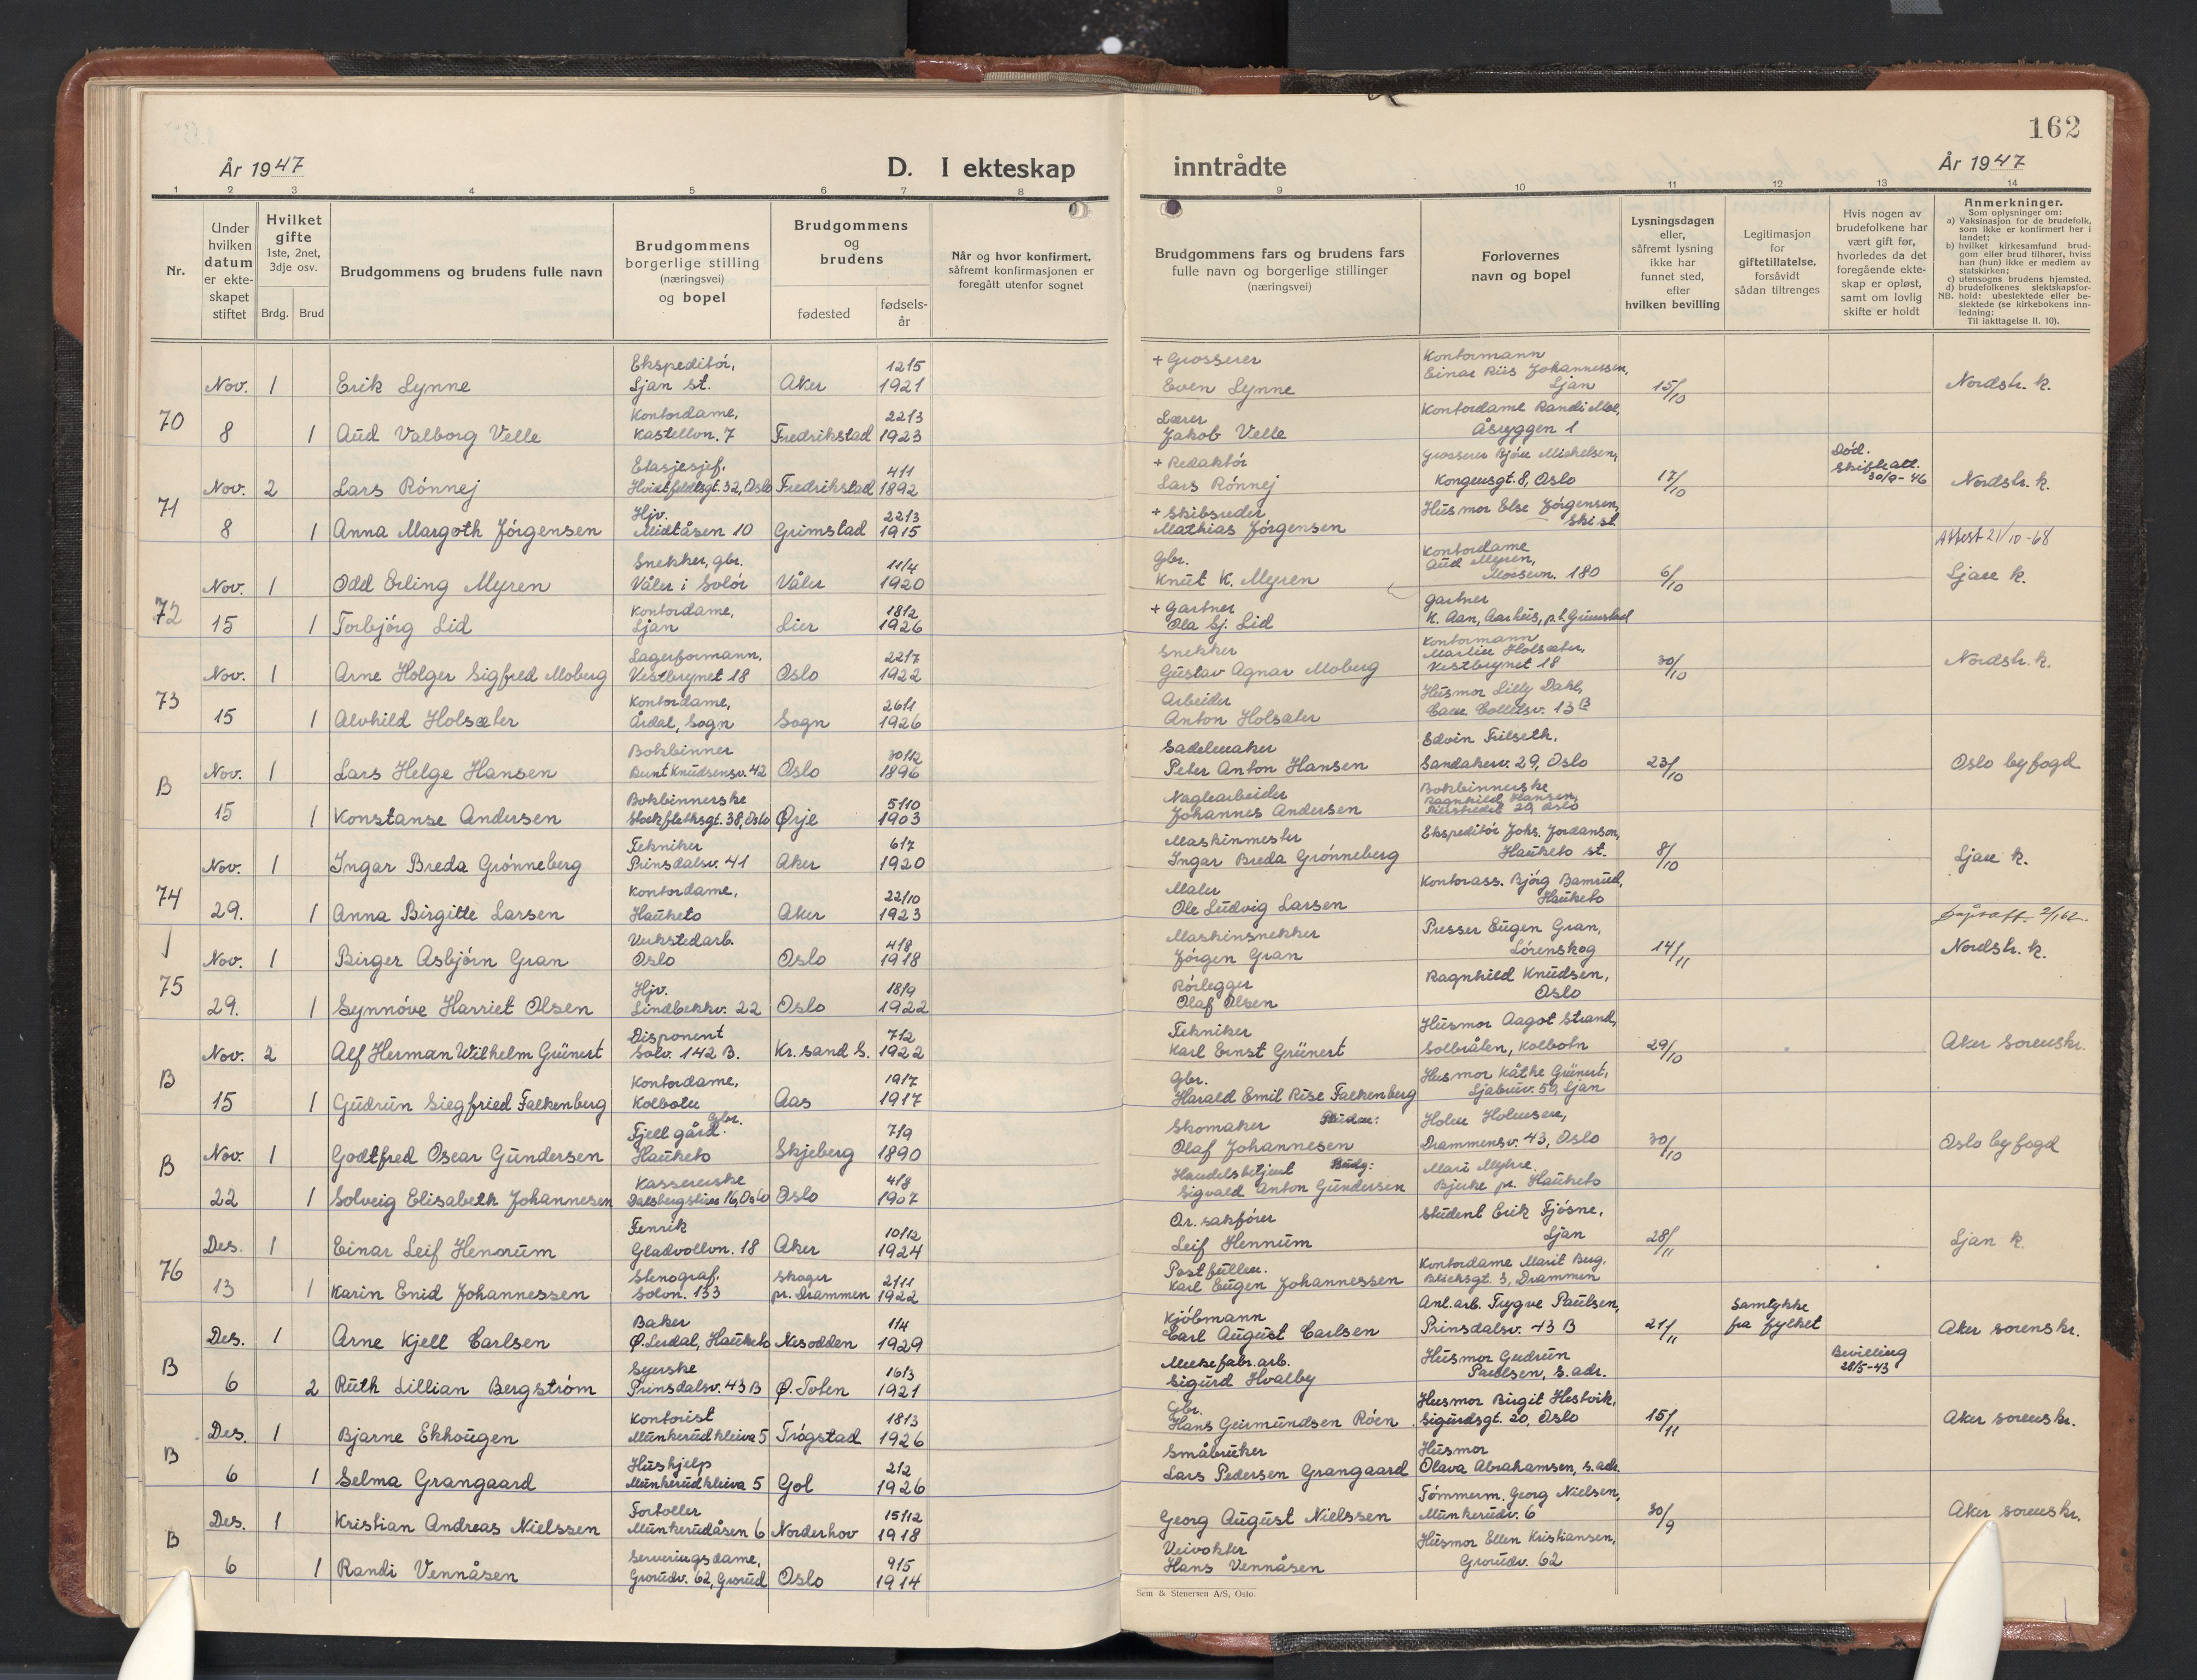 162
År 1947
D. I ekteskap
inntrådte
År 1947
1 2 3 4 5 6 7 8 9 10 11 12 13 14
Nr.
Under hvilken datum er ekteskapet stiftet
Hvilket gifte 1ste, 2net, 3dje osv.
Brdg. Brud
Brudgommens og brudens fulle navn
Brudgommens borgerlige stilling (næringsvei) og bopel
Brudgommens og brudens
fødested
fødsels-
år
Når og hvor konfirmert,
såfremt konfirmasjonen er
foregått utenfor sognet
Brudgommens fars og brudens fars
fulle navn og borgerlige stillinger
(næringsvei)
Forlovernes
navn og bopel
Lysningsdagen
eller,
såfremt lysning
ikke har
funnet sted,
efter
hvilken bevilling
Legitimasjon
for
giftetillatelse,
forsåvidt
sådan tiltrenges
Hvis nogen av
brudefolkene har
vært gift før,
hvorledes da det
foregående ekte-
skap er opløst,
samt om lovlig
skifte er holdt
Anmerkninger.
Som oplysninger om:
a) Vaksinasjon for de brudefolk,
som ikke er konfirmert her i
landet;
b) hvilket kirkesamfund brud-
gom eller brud tilhører, hviss
han (hun) ikke er medlem av
statskirken;
c) utensogns brudens hjemsted.
d) brudefolkenes slektskapsfor-
NB. hold: ubeslektede eller be-
slektede (se kirkebokens inn-
ledning;
Til iakttagelse II. 10).
70 Nov. 1 Erik Lynne Ekspeditór, Ljan st. Aker 12/5 1921 + Grosserer Even Lynne Kontormann Einar Riis Johannessen, Ljan 15/10 Nordstr. k.
8 1 Aud Valborg Velle Kontordame, Kastellvn. 7 Fredrikstad 22/3 1923 Lærer Jakob Velle Kontordame Randi Moe, Åsryggen 1
71 Nov. 2 Lars Rónnej Etasjesjef. Hvidtfeldtsgt. 32, Oslo Fredrikstad 4/1 1892 + Redaktór Lars Rónnej Grosserer Bjóre Mickelsen, Kongensgt. 8, Oslo 17/10 Dód. Skifteatt. 30/9-46 Nordstr. k.
8 1 Anna Margoth Jórgensen Hjv. Midtåsen 10 Grimstad 22/3 1915 + Skibsreder Mathias Jórgensen Husmor Else Jórgensen, Ski st.
Attest 21/10-68
72 Nov. 1 Odd Erling Myren Snekker, gbr. Våler i Solór Våler 11/4 1920 Gbr. Knut K. Myren Kontordame Aud Myren, Mossevn. 180 6/10 Ljan k.
15 1 Torbjórg Lid Kontordame, Ljan Lier 18/2 1926 + Gartner Ola Sj. Lid Gartner K. Aan, Aarhus, p.t. Grimstad
73 Nov. 1 Arne Holger Sigfred Moberg Lagerformann, Vestbrynet 18 Oslo 22/7 1922 Snekker Gustav Agnar Moberg Kontormann Martin Holsæter, Vestbrynet 18 30/10 Nordstr. k.
15 1 Alvhild Holsæter Kontordame, Årdal, Sogn Sogn 26/1 1926 Arbeider Anton Holsæter Husmor Lilly Dahl, Cam. Colletsv. 13 B
B Nov. 1 Lars Helge Hansen Bokbinner Bernt Knudsensv. 42 Oslo 30/12 1896 Sadelmaker Peter Anton Hansen Edvin Frilseth, Sandakerv. 29, Oslo 23/10 Oslo byfogd
15 1 Konstanse Andersen Bokbinnerske Stockflethsgt. 38, Oslo Ørje 5/10 1903 Naglearbeider Johannes Andersen Bokbinnerske Ragnhild Hansen, Pilestredet 29, Oslo
74 Nov. 1 Ingar Breda Grónneberg Tekniker Prinsdalsv. 41 Aker 6/7 1920 Maskinmester Ingar Breda Grónneberg Ekspeditór Johs. Jordanson, Hauketo st. 8/10 Ljan k.
29. 1 Anna Birgitte Larsen Kontordame, Hauketo Aker 22/10 1923 Maler Ole Ludvig Larsen Kontorass. Bjórg Bamrud, Hauketo
75 Nov. 1 Birger Asbjórn Gran Verkstedarb. Oslo Oslo 4/8 1918 Maskinsnekker Jórgen Gran Presser Eugen Gran, Lórenskog 14/11 Nordstr. k.
29. 1 Synnóve Harriet Olsen Hjv. Lindbekkv. 22 Oslo 18/9 1922 Rórlegger Olaf Olsen Ragnhild Knudsen, Oslo
B Nov. 2 Alf Herman Wilhelm Grünert Disponent Solv. 142 B. Kr.sand S. 7/2 1922 Tekniker Karl Ernst Grünert Husmor Aagot Strand, Solbråten, Kolbotn 29/10 Aker sorenskr.
15 1 Gudrun Siegfried Falkenberg Kontordame, Kolbotn Aas 19/7 1917 Gbr. Harald Emil Rise Falkenberg Husmor Käthe Grünert, Ljabruv. 50, Ljan
B Nov. 1 Godtfred Oscar Gundersen Gbr. Fjell gård. Hauketo Skjeberg 7/9 1890 Skomaker Bruden: Olaf Johannesen Holm Holmsen, Drammensv. 43, Oslo 30/10 Oslo byfogd
22 1 Solveig Elisabeth Johannesen Kassererske Dalsbergstien 16, Oslo Oslo 4/8 1907 Handelsbetjent Brudg: Sigvald Anton Gundersen Mari Myhre. Bjerke pr. Hauketo
76 Des. 1 Einar Leif Hennum Fenrik Gladvollvn. 18 Aker 10/12 1924 O.r. sakfórer Leif Hennum Student Erik Fjósne, Ljan 28/11 Ljan k.
13 1 Karin Enid Johannessen Stenograf. Solvn. 133 Skoger pr. Drammen 2/11 1922 Postfullm. Karl Eugen Johannessen Kontordame Marit Berg, Blichsgt. 3, Drammen
B Des. 1 Arne Kjell Carlsen Baker Ø. Lerdal, Hauketo Nesodden 1/4 1929 Kjóbmann Carl August Carlsen Anl.arb. Trygve Paulsen, Prinsdalsv. 43 B 21/11 Samtykke fra fylket Aker sorenskr.
6 2 Ruth Lillian Bergstróm Syerske Prinsdalsv. 43 B Ø. Toten 16/3 1921 Mekefabr.arb. Sigurd Hvalby Husmor Gudrun Paulsen, s.adr. Bevilling 28/5-43
B Des. 1 Bjarne Ekhougen Kontorist Munkerudkleiva 5 Trógstad 18/3 1926 Gbr. Hans Geirmundsen Róen Husmor Birgit Hestvik, Sigurdsgt. 20, Oslo 15/11 Aker sorenskr.
6 1 Selma Grangaard Hushjelp Munkerudkleiva 5 Gol 2/2 1926 Småbruker Lars Pedersen Grangaard Husmor Olava Abrahamsen, s.adr.
B Des. 1 Kristian Andreas Nielssen Fortoller Munkerudåsen 6 Norderhov 15/12 1918 Georg August Nielssen Tómmerm. Georg Nielsen, Munkerudv. 6 30/9 Aker sorenskr.
6 1 Randi Vennåsen Serveringsdame, Grorudv. 62, Grorud Oslo 9/5 1914 Veivokter Hans Vennåsen Husmor Ellen Kristiansen, Grorudv. 62
Sem & Stenersen A/S, Oslo.